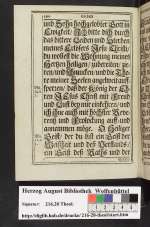 und Sohn hochgelobter Gott in
Ewigkeit/ Ich bitte dich durch
das bittere Leiden und Sterben
meines Erlösers Jesu Christi/
du wollest die Wohnung meines
Hertzen heiligen/
und die Thü-
re meiner Seelen angelweit auff-
sperren/ daß der König der Eh-
ren JEsus Christ mit Freud
und Lust bey mir einkehre/ un
ich ihne auch mit höchster Reve-
rentz und Frolockung auff und
annemmen möge. O Heiliger
Geist/ der du bist ein Geist der
Weißheit und des Verstands/
ein Geist des Raths und der
Herzog August Bibliothek Wolfenbüttel
Signatur: 214.20 Theol.
http://diglib.hab.de/drucke/214-20-theol/start.htm